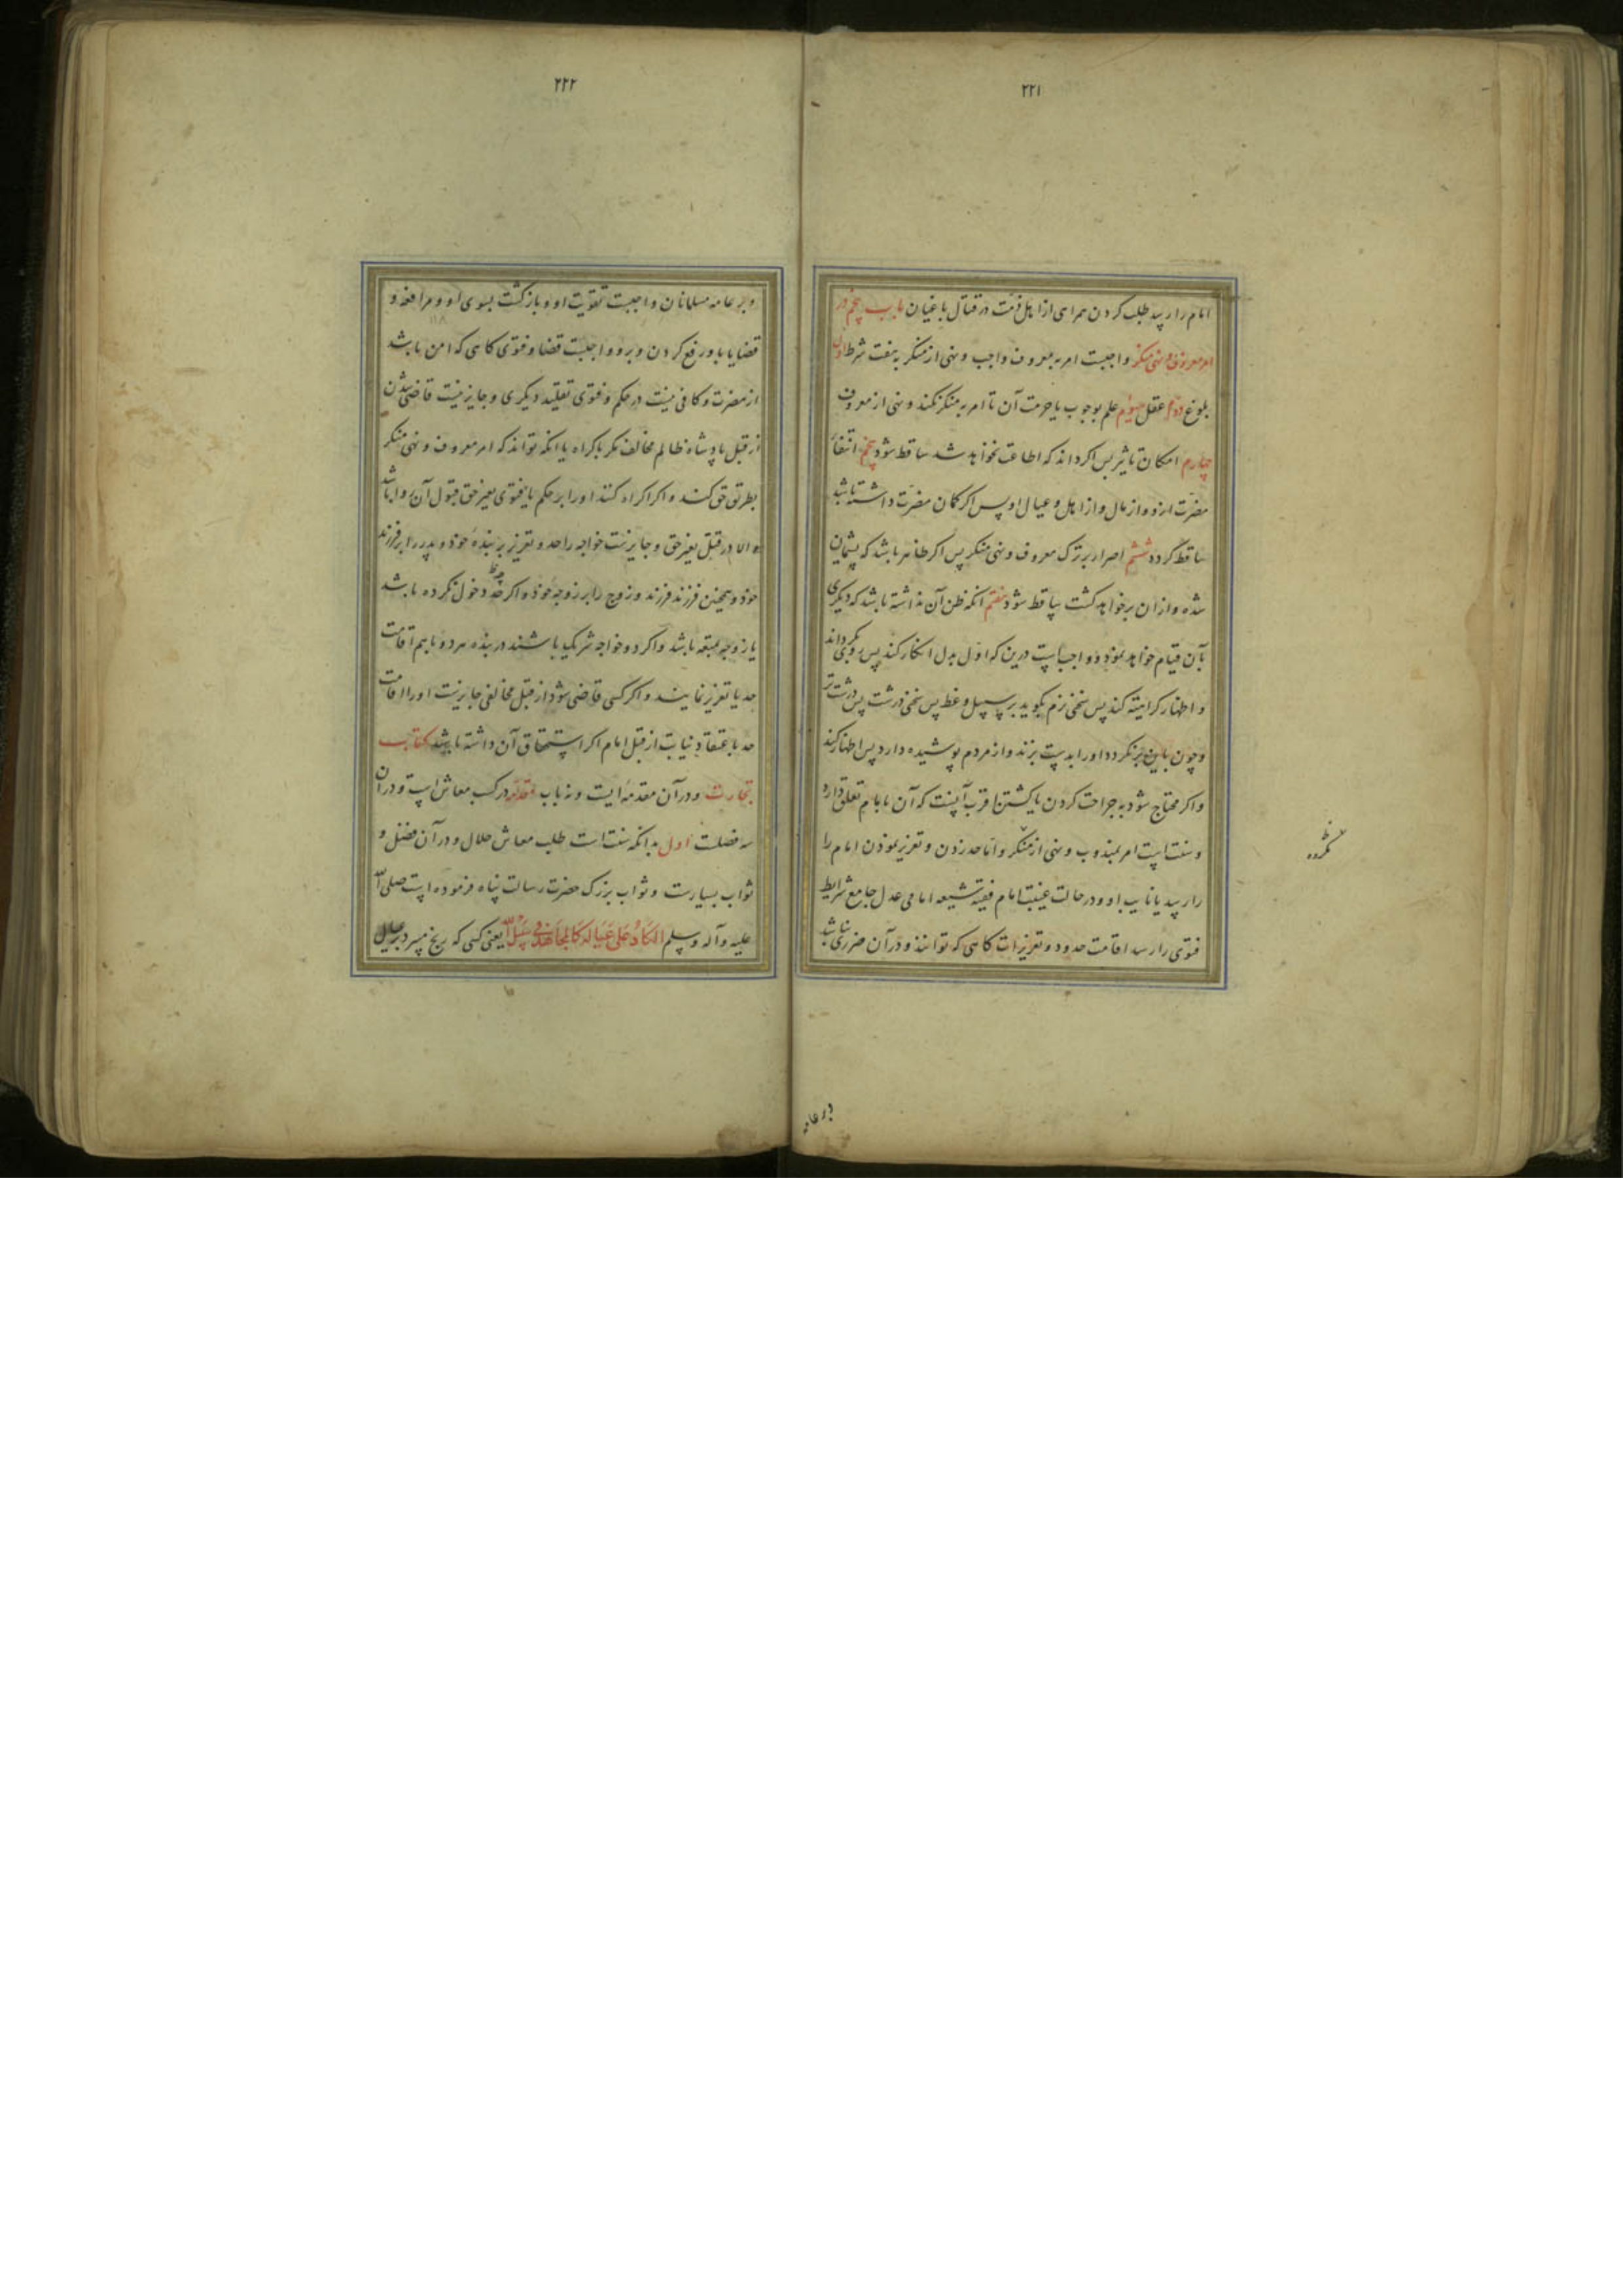 ٢٢١
امام را رسد طلب کردن همراهی از اهل ذمت در قتال باغیان باب پنجم در
امر معروف و نهی منکر واجبست امر به معروف واجب و نهی از منکر به هفت شرط اول
بلوغ دوم عقل سیوم علم بوجوب یا حرمت آن تا امر به منکر نکند و نهی از معروف
چهارم امکان تاثیر پس اگر داند که اطاعت نخواهد شد ساقط شود پنجم انتفأ
مضرّت ازو و از مال و از اهل و عیال او پس اگر گمان مضرّت داشته باشد
ساقط گردد ششم اصرار بر ترک معروف و نهی منکر پس اگر ظاهر باشد که پشیمان
شده و از ان بر خواهد گشت ساقط شود هفتم انکه ظن آن نداشته باشد که دیگری
بآن قیام خواهد نمود و واجبست درین که اول بدل انکار کند پس رو بگرداند
و اظهار کراهیته کند پس سخنی نرم بگوید بر سبیل وعظ پس سخنی درشت پس درشت تر
و چون باین نیز نگردد او را بدست بزند و از مردم پوشیده دارد پس اظهار کند
و اگر محتاج شود به جراحت کردن یا کشتن اقرب آنست که آن بامام تعلق دارد
و سنت است امر بمندوب و نهی از منکر و اما حد زدن و تعزیر نمودن امام را
رسد یا نایب او و در حالت غیبت امام فقیه شیعه امامی عدل جامع شرایط
فتوی را رسد اقامت حدود و تعزیرات گاهی که توانند و در آن ضرری نباشد
نگردد
بر عامه
٢٢٢
و بر عامه مسلمانان واجبست تقویت او و بازگشت بسوی او و مرافعه و
قضایا باو رفع کردن و برو واجبست قضا و فتوی گاهی که امن باشد
از مضرت و کافی نیست در حکم و فتوی تقلید دیگری و جایز نیست قاضی شدن
از قبل پادشاه ظالم مخالف مگر باکراه یا انکه تواند که امر معروف و نهی منکر
بطریق حق کند و اگر اکراه کنند او را بر حکم یا فتوی بغیر حق قبول آن روا باشد
الا در قتل بغیر حق و جایزست خواجه را حد و تعزیر بر بنده خود و پدر را بر فرزند
خود و همچنین فرزند فرزند و زوج را بر زوجه خود و اگر چه دخول نکرده باشد
یا زوجه بمتعه باشد و اگر دو خواجه شریک باشند در بنده هر دو باهم اقامت
حد یا تعزیر نمایند و اگر کسی قاضی شود از قبل مخالفی جایزست او را اقامت
حد باعتقاد نیابت از قبل امام اگر استحقاق آن داشته باشد کتاب
تجارت و در آن مقدمه ایست و نه باب مقدمه در کسب معاش است و در آن
سه فصلت اول بدانکه سنت است طلب معاش حلال و در آن فضل و
ثواب بسیارست و ثواب بزرک حضرت رسالت پناه فرموده است صلی الله
علیه و آله و سلم الکادّ علی عیاله کالمجاهد فی سبیل الله یعنی کسی که رنج میبرد بر عیال